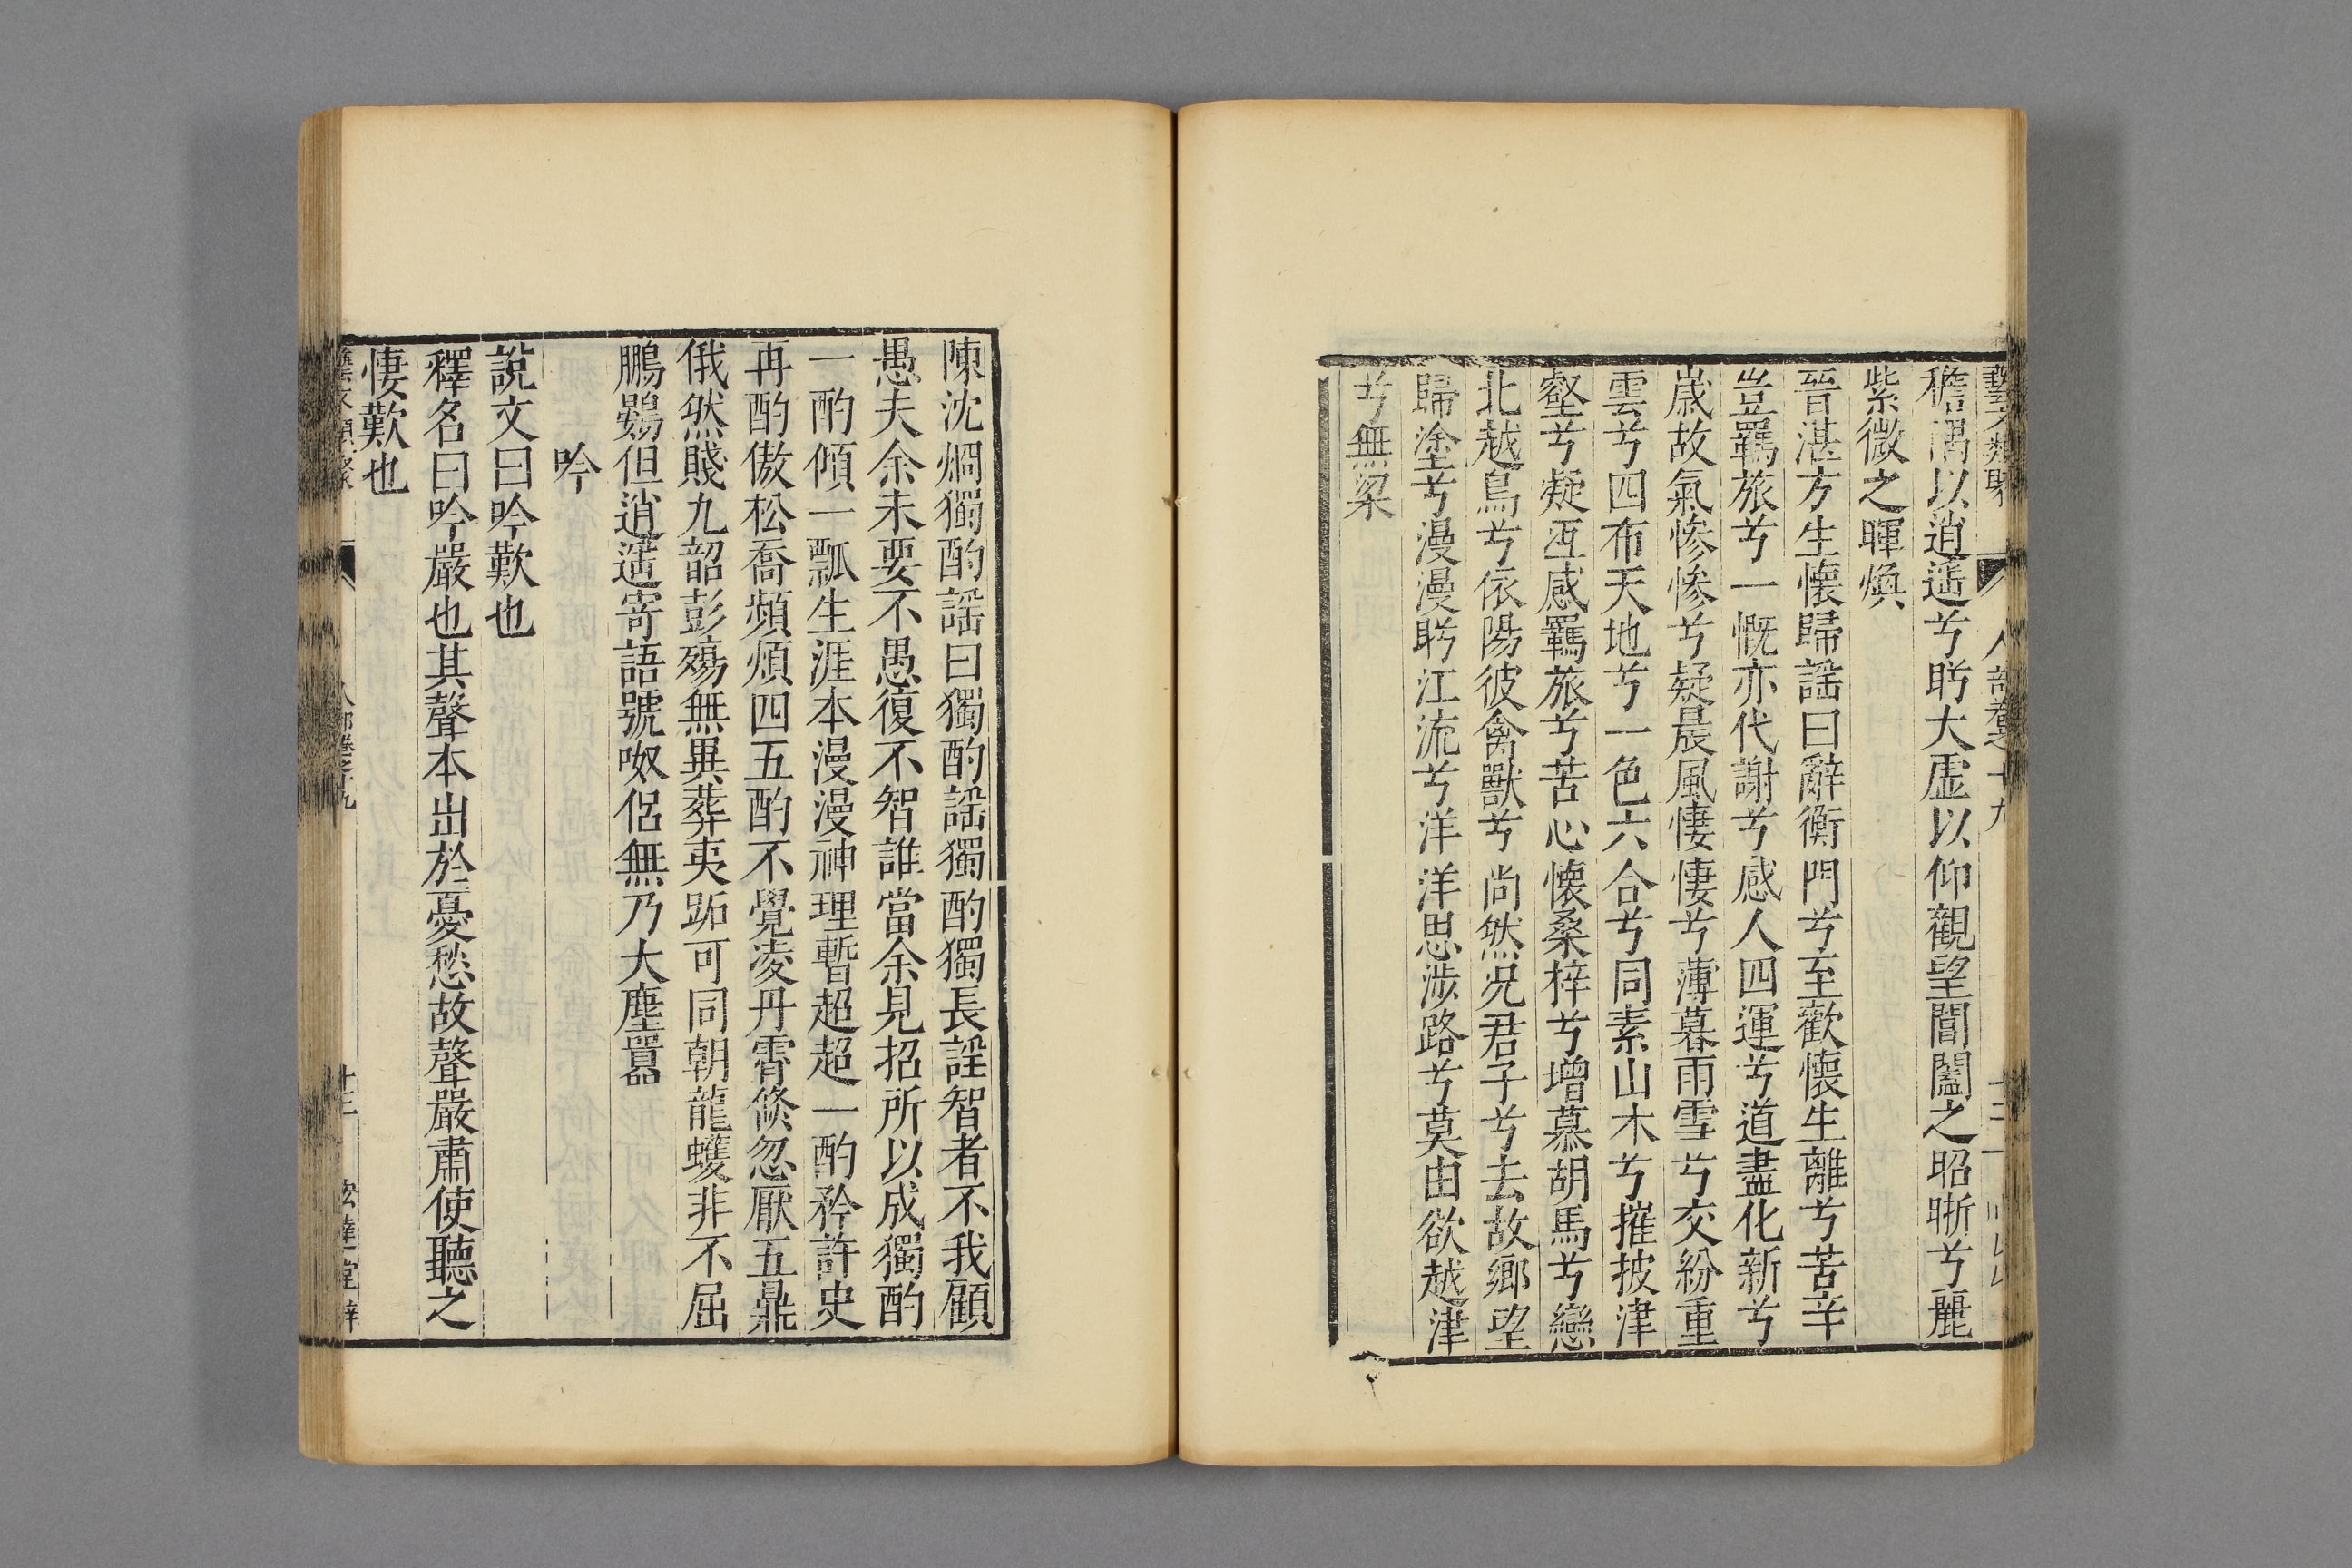 藝文類聚 人部卷之十九 十二
檐隅以逍遥兮眄大虛以仰觀望閶闔之昭晣兮麗
紫微之暉煥
晉湛方生懷歸謡曰辭衡門兮至歡懷生離兮苦辛
豈羈旅兮一慨亦代謝兮感人四運兮道盡化新兮
歲故氣慘慘兮疑晨風悽悽兮薄暮雨雪兮交紛重
雲兮四布天地兮一色六合兮同素山木兮摧披津
壑兮凝冱感羈旅兮苦心懷桑梓兮增慕胡馬兮戀
北越鳥兮依陽彼禽獸兮尚然况君子兮去故鄉望
歸塗兮漫漫眄江流兮洋洋思涉路兮莫由欲越津
兮無梁
陳沈烱獨酌謡曰獨酌謡獨酌獨長謡智者不我顧
愚夫余未要不愚復不智誰當余見招所以成獨酌
一酌傾一瓢生涯本漫漫神理暫超超一酌矜許史
再酌傲松喬頻煩四五酌不覺凌丹霄倐忽厭五鼎
俄然賤九韶彭殤無異葬夷跖可同朝龍蠖非不屈
鵬鷃但逍遥寄語號呶侣無乃大塵囂
吟
說文曰吟歎也
釋名曰吟嚴也其聲本出於憂愁故聲嚴肅使聽之
悽歎也
藝文類聚 人部卷之十九 十三 宏達堂梓